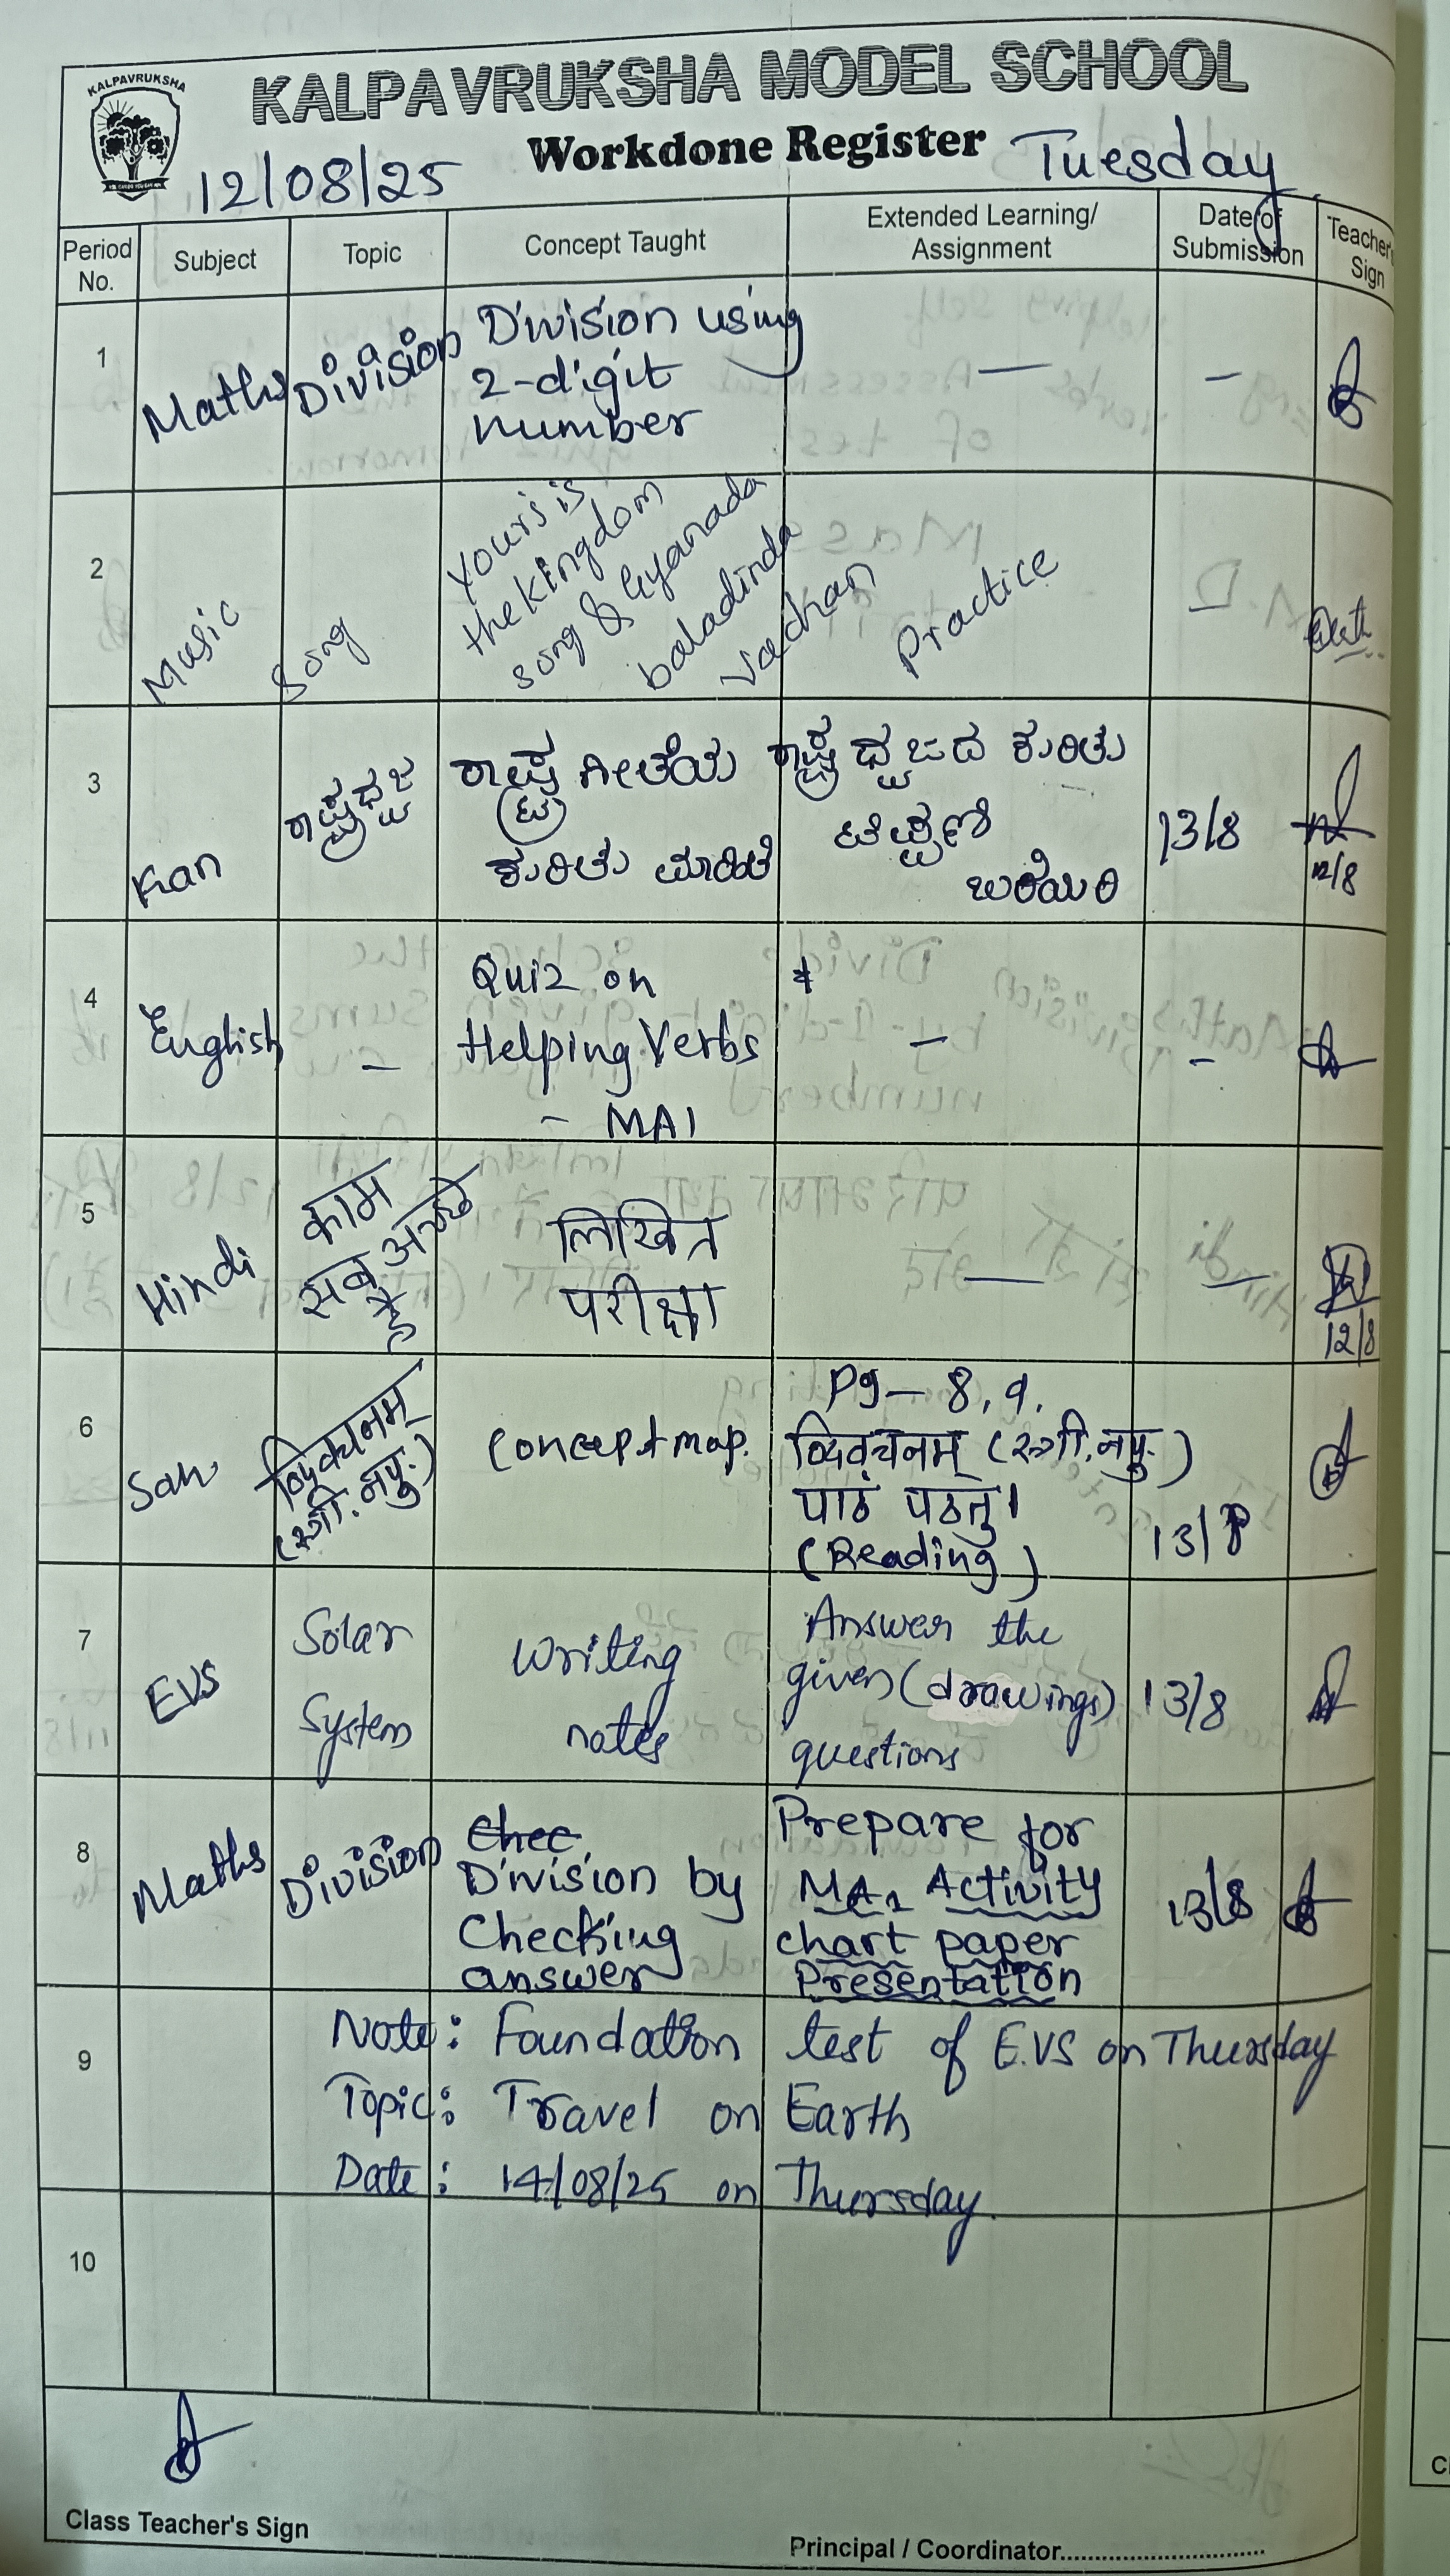 KALPAVRUKSHA
KALPAVRUKSHA MODEL SCHOOL
Workdone Register
12/08/25
Tuesday
Period No.
Subject
Topic
Concept Taught
Extended Learning/
Assignment
Date of
Submission
Teacher's
Sign
1
Maths
Division
Division using
2-digit
number
—
–
2
Music
Song
Yours is
the kingdom
song & Gyanada
baladinda
vachan
Practice
3
Kan
ರಾಷ್ಟ್ರಧ್ವಜ
ರಾಷ್ಟ್ರ ಗೀತೆಯ
ಕುರಿತು ಮಾಹಿತಿ
ರಾಷ್ಟ್ರ ಧ್ವಜದ ಕುರಿತು
ಟಿಪ್ಪಣಿ
ಬರೆಯಿರಿ
13/8
12/8
4
English
–
Quiz on
Helping Verbs
– MA1
–
–
5
Hindi
काम
सब अच्छे
हैं
लिखित
परीक्षा
—
—
12/8
6
San
द्विवचनम्
(स्त्री. नपु.)
Concept map.
Pg – 8, 9.
द्विवचनम् (स्त्री. नपु.)
पाठं पठतु।
(Reading)
13/8
7
EVS
Solar
System
Writing
notes
Answer the
given (drawings)
questions
13/8
8
Maths
Division
Chec
Division by
Checking
answer
Prepare for
MA1 Activity
chart paper
Presentation
13/8
9
Note: Foundation test of E.VS on Thursday
Topic: Travel on Earth
Date: 14/08/25 on Thursday.
10
Class Teacher's Sign
Principal / Coordinator..............................